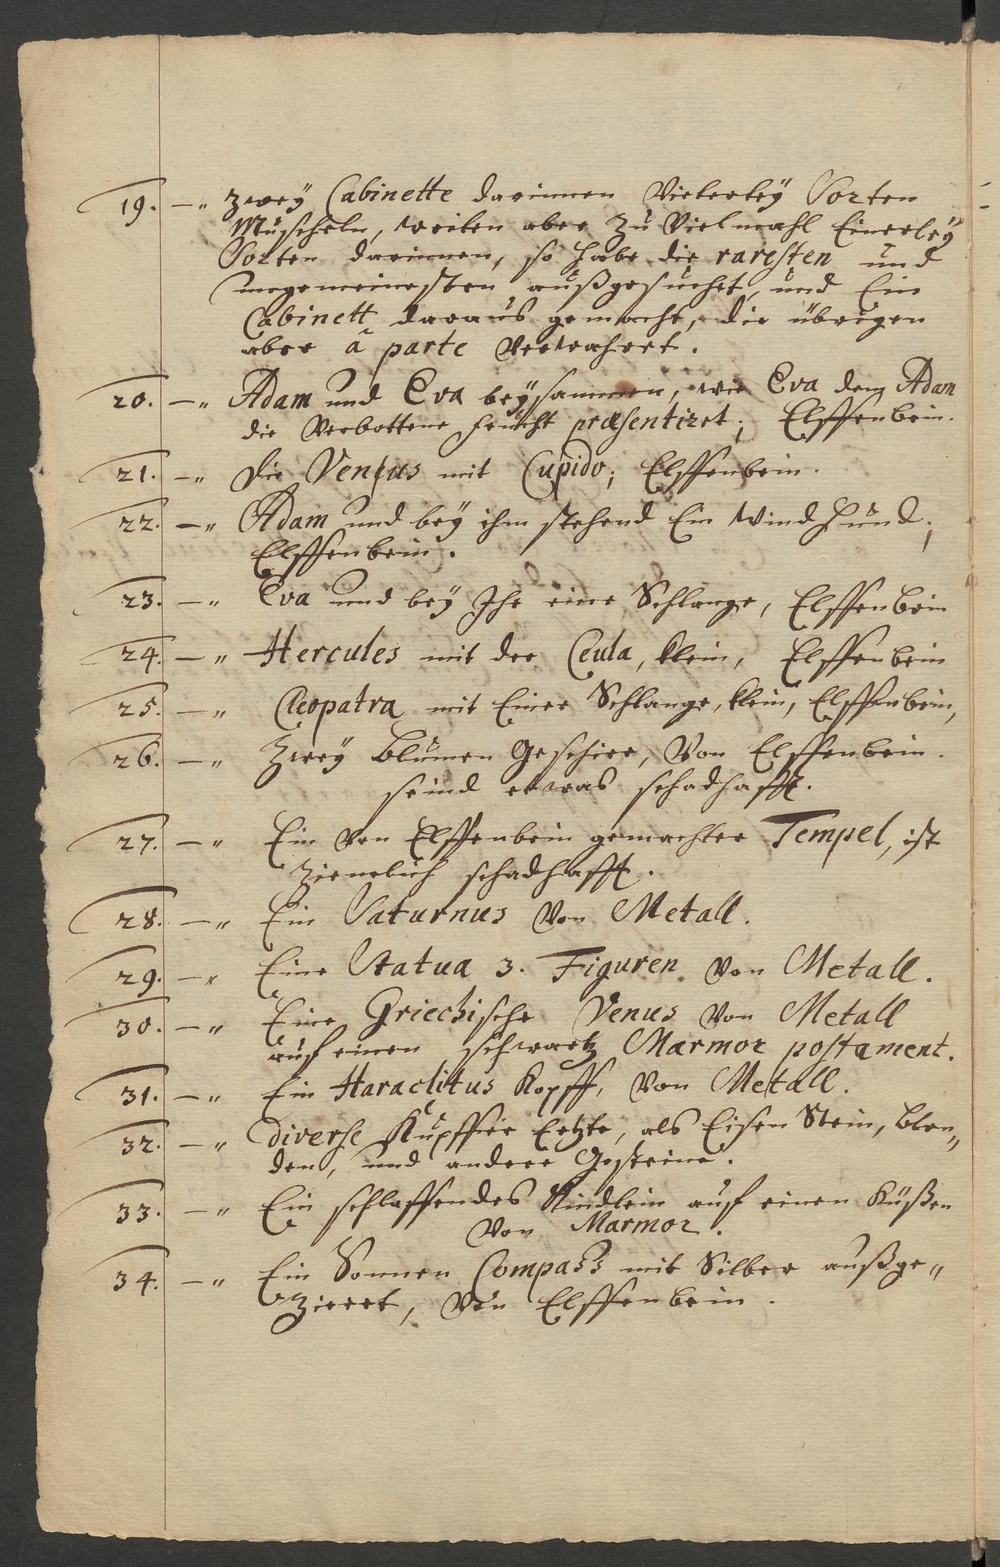 19. –„ Zweÿ Cabinette darinnen Vielerleÿ Sorten
Muscheln, weilen aber Zu Vielmahl Einerleÿ
Sorten darinnen, so habe die raresten und
ungemeinesten außgesuchet, und Ein
Cabinett daraus gemacht, die übrigen
aber â parte verwahret.
20. –„ Adam und Eva beÿsammen, wie Eva dem Adam
die Verbottene frucht præsentiret; Elffenbein.
21. –„ Die Venus mit Cupido; Elffenbein.
22. –„ Adam und beÿ ihm stehend Ein Windhund;
Elffenbein.
23. –„ Eva und beÿ Ihr eine Schlange, Elffenbein
24. –„ Hercules mit der Ceula, klein, Elffenbein
25. –„ Cleopatra mit Einer Schlange, klein, Elffenbein,
26. –„ Zweÿ Blumen Geschirr, Von Elffenbein.
seind etwas schadhafft.
27. –„ Ein von Elffenbein gemachter Tempel, ist
Ziemelich schadhafft.
28. –„ Ein Saturnus Von Metall.
29. –„ Eine Statua 3. Figuren Von Metall.
30. –„ Eine Griechische Venus Von Metall
auf einen schwartz Marmor postament.
31. –„ Ein Haraclitus Kopff, Von Metall.
32. –„ Diverse Kupffer Ertzte, als Eisen Stein, Blen„
den, und andere Gesteine.
33. –„ Ein schlaffendes Kindlein auf einen Küßen
Von Marmor.
34. –„ Ein Sonnen Compass mit Silber außge„
Zieret, Von Elffenbein.